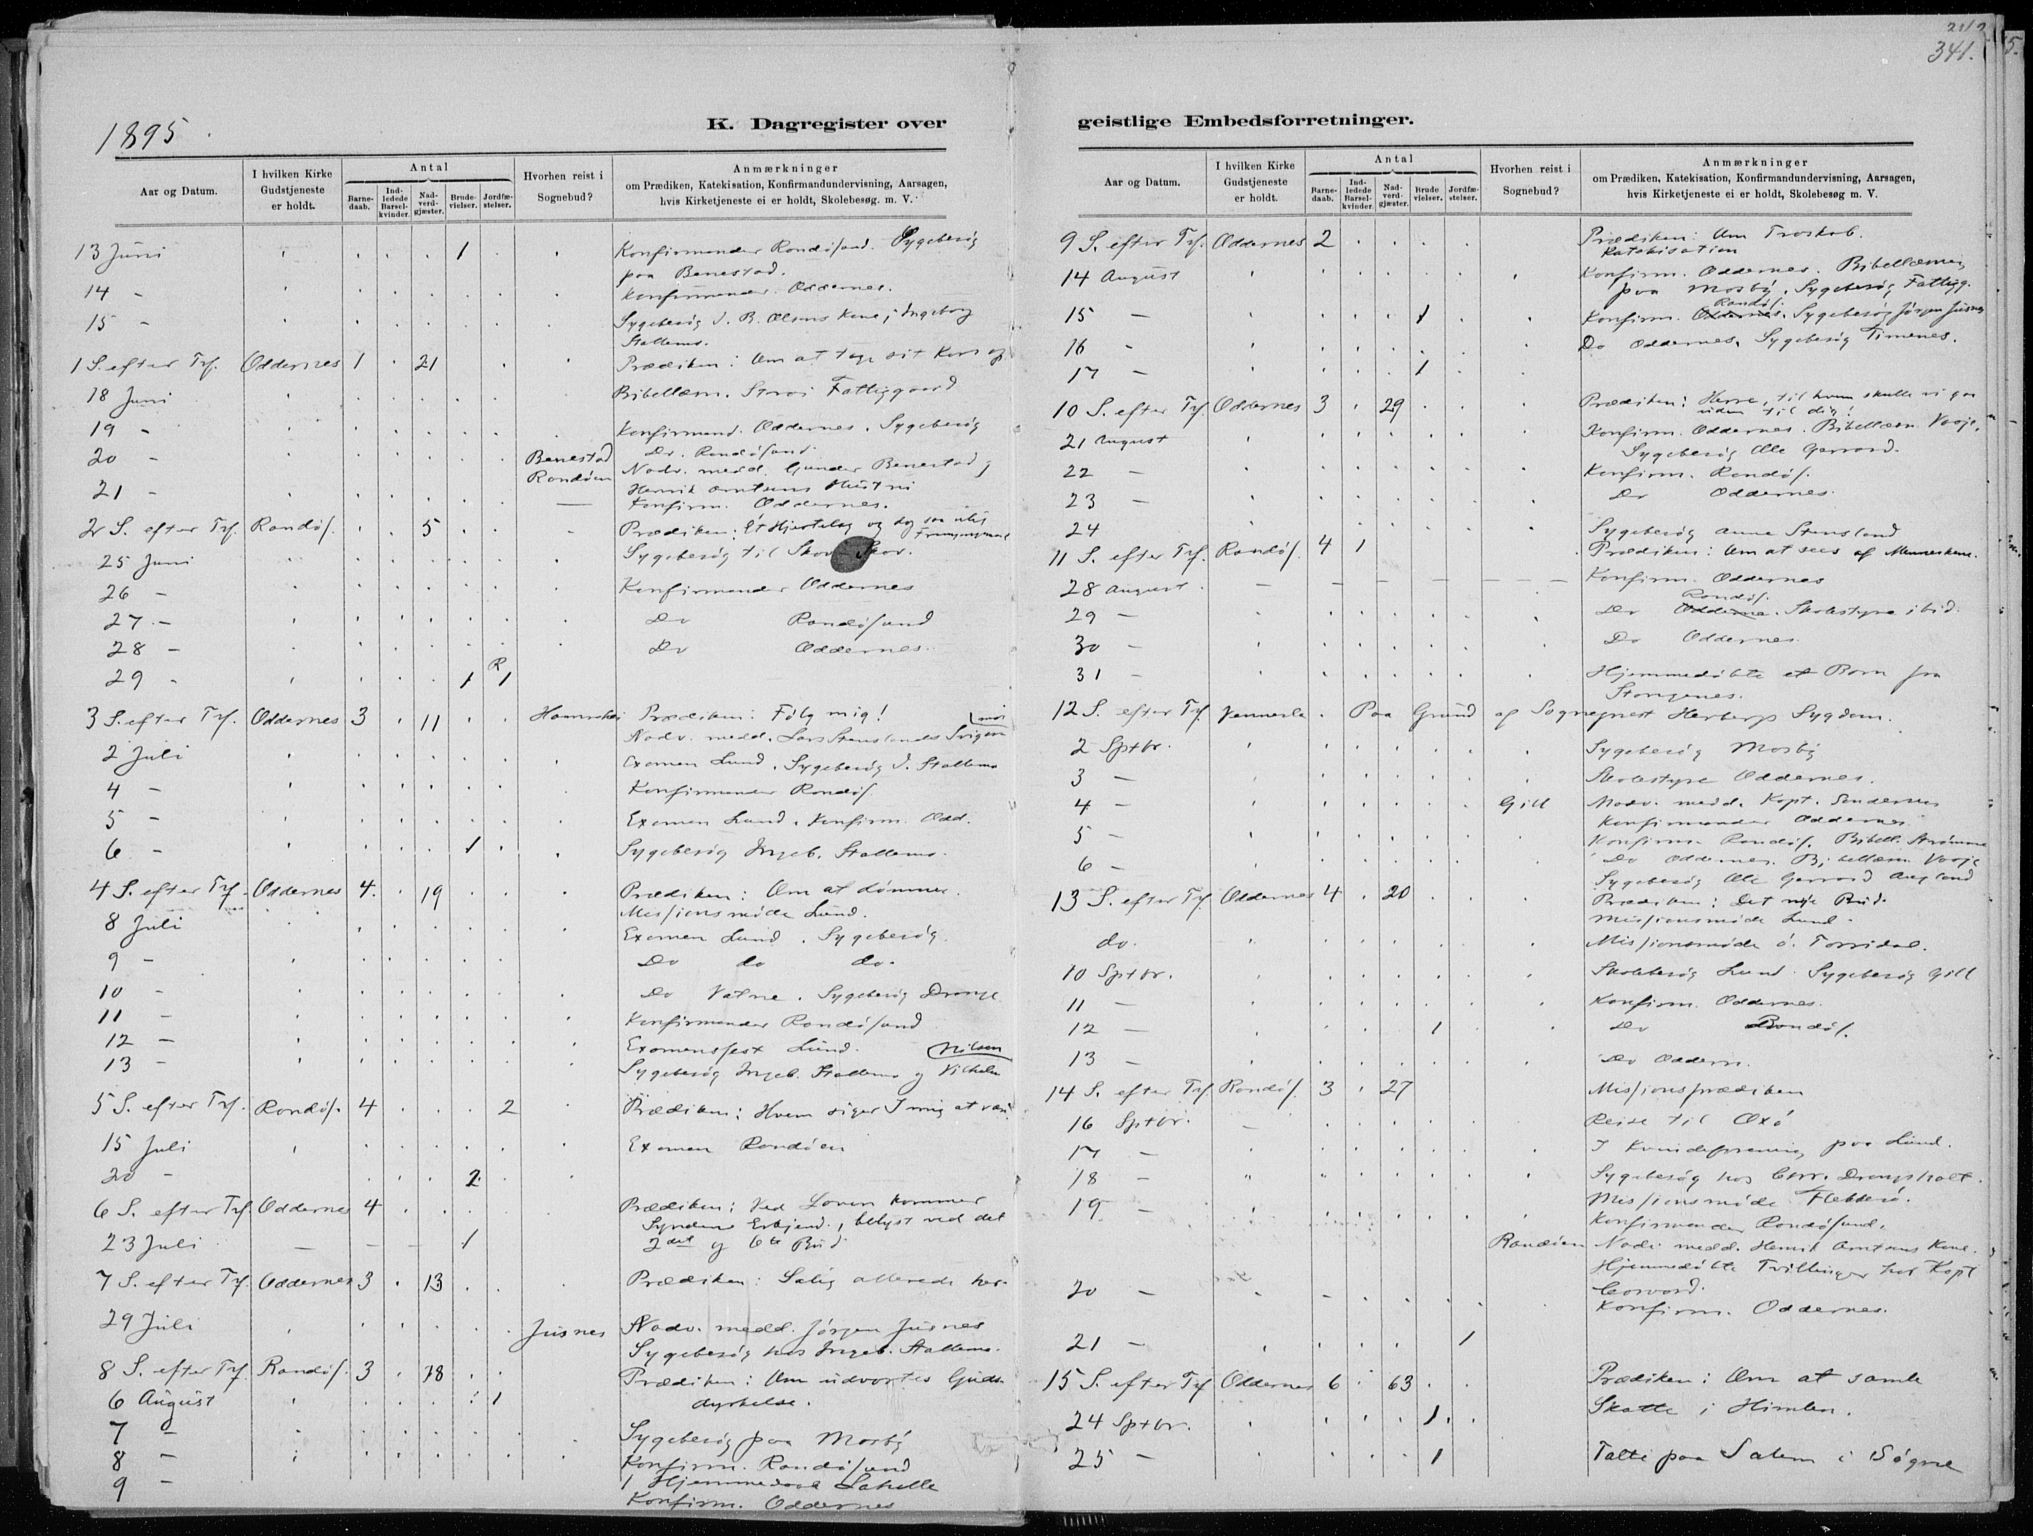 1895
K. Dagregister over
Aar og Datum. I hvilken Kirke Gudstjeneste er holdt. Antal Barnedaab. Indledede Barselkvinder. Nadverdgjæster. Brudevielser. Jordfæstelser. Hvorhen reist i Sognebud? Anmærkninger om Prædiken, Katekisation, Konfirmandundervisning, Aarsagen, hvis Kirketjeneste ei er holdt, Skolebesøg m. V.
13 Juni 1 Konfirmander Randøsund. Sygebesøg
paa Benestad.
14 - Konfirmander Oddernes.
15 - Sygebesøg J. B. Olsens Kone, Ingeborg
Stallems.
1 S. efter Trf. Oddernes 1 21 Prædiken: Om at tage sit Kors op
18 Juni Bibellæsn. Strai Fattiggaard
19 - Konfirmand. Oddernes. Sygebesøg
20 - Benestad Do. Randøsund
Randøen Nadv. medd. Gunder Benestad
21 - Henrik Arntsens Hustru
Konfirm. Oddernes.
2 S. efter Trf. Randøs. 5 Prædiken: Et Hjertelag og dog saa ulig
25 Juni Sygebesøg til
26 - Konfirmander Oddernes
27 - Do Randøsund
28 - Do Oddernes
29 - 1 R 1
3 S. efter Trf. Oddernes 3 11 Prædiken: Følg mig!
Nadv. medd. Lars Stenslands Sviger
mor
2 Juli Examen Lund. Sygebesøg J. Stallems
4 - Konfirmander Randøs.
5 - Examen Lund. Konfirm. Odd.
6 - 1 Sygebesøg Ingeb. Stallems.
4 S. efter Trf. Oddernes 4. 19 Prædiken: Om at dømme.
Missionsmøde Lund.
8 Juli Examen Lund. Sygebesøg.
9 - Do do do.
10 - Do Vatne. Sygebesøg
11 - Konfirmander Randøsund
12 - Examensfest Lund.
13 - Sygebesøg Ingeb. Stallems og Vilhelm
Nilsen
5 S. efter Trf. Randøs. 4 2 Prædiken: Hvem siger I mig at være
15 Juli Examen Randøen
20 - 2
6 S. efter Trf. Oddernes 4 Prædiken: Ved Loven kommer
Syndens Erkjend., belyst ved det
23 Juli 1 2det og 6te Bud
7 S. efter Trf. Oddernes 3 13 Prædiken: Salig allerede her.
29 Juli Jusnes Nadv. medd. Jørgen Jusnes
Sygebesøg hos Ingeb. Stallems.
8 S. efter Trf. Randøs. 3 18 Prædiken: Om udvortes Guds-
dyrkelse.
6 August 1
7 - Sygebesøg paa Mosby
8 - Konfirm. Randøsund
9 - 1 Hjemmedaab
Konfirm. Oddernes
341.
geistlige Embedsforretninger.
Aar og Datum. I hvilken Kirke Gudstjeneste er holdt. Antal Barnedaab. Indledede Barselkvinder. Nadverdgjæster. Brudevielser. Jordfæstelser. Hvorhen reist i Sognebud? Anmærkninger om Prædiken, Katekisation, Konfirmandundervisning, Aarsagen, hvis Kirketjeneste ei er holdt, Skolebesøg m. V.
9 S. efter Trf. Oddernes 2 Prædiken: Om Troskab.
Katekisation
14 August Konfirm. Oddernes. Bibellæsning
paa Mosby. Sygebesøg Fattigg.
15 - 1 Konfirm. Oddernes Randøs. Sygebesøg Jørgen Jusnes
16 - Do Oddernes. Sygebesøg Timenes.
17 - 1
10 S. efter Trf. Oddernes 3 29 Prædiken: Herre, til hvem skulle vi gaa
uden til dig!
21 August Konfirm. Oddernes. Bibellæsn. Vaaje.
Sygebesøg Ole
22 - Konfirm. Randøs.
23 - Do Oddernes.
24 Sygebesøg Anne Stensland
11 S. efter Trf. Randøs. 4 1 Prædiken: Om at sees af Menneskene.
28 August Konfirm. Oddernes
29 - Do Oddernes Randøs. Skolestyre ibid.
30 - Do Oddernes
31 - Hjemmedøbte et Barn fra
Stangenes.
12 S. efter Trf. Vennesla Paa Grund af Sognepræst Herbergs Sygdom.
2 Sptbr. Sygebesøg Mosby
3 - Skolestyre Oddernes.
4 - Gill Nadv. medd. Kapt.
Konfirmander Oddernes
5 - Konfirm. Randøs. Bibell. Strømme
6 - Do Oddernes. Bibellæsn. Vaaje
Sygebesøg Ole
13 S. efter Trf. Oddernes 4 20 Prædiken: Det nye Bud.
Missionsmøde Lund.
do. Missionsmøde Ø. Torridal.
10 Sptbr. Skolebesøg Lund. Sygebesøg Gill
11 - Konfirm. Oddernes.
12 - 1 Do Randøs.
13 - Do Oddern.
14 S. efter Trf. Randøs. 3 27 Missionsprædiken
16 Sptbr. Reise til Oxø
17 - I Kvindeforening paa Lund.
18 - Sygebesøg hos Chr. Drangsholt.
Missionsmøde Flekkerø.
19 - Konfirmander Randøsund.
Randøen Nadv. medd. Henrik Arntsens Kone.
Hjemmedøbte Tvillinger hos Kapt
20 - Konfirm. Oddernes.
21 - 1
15 S. efter Trf. Oddernes 6 63 Prædiken: Om at samle
Skatte i Himlen.
24 Sptbr. 1
25 - 1 Talte paa Salem i Søgne